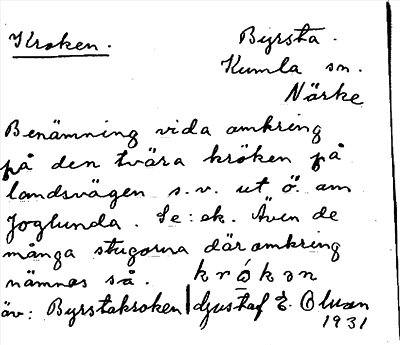 Kroken.
Byrsta.
Kumla sn.
Närke
Benämning vida omkring
på den tvära kröken på
landsvägen s.v. ut ö. om
Joglunda. Se: ek. Även de
många stugorna däromkring
nämnas så. krokən
äv: Byrstakroken
Gustaf E. Olsson
1931